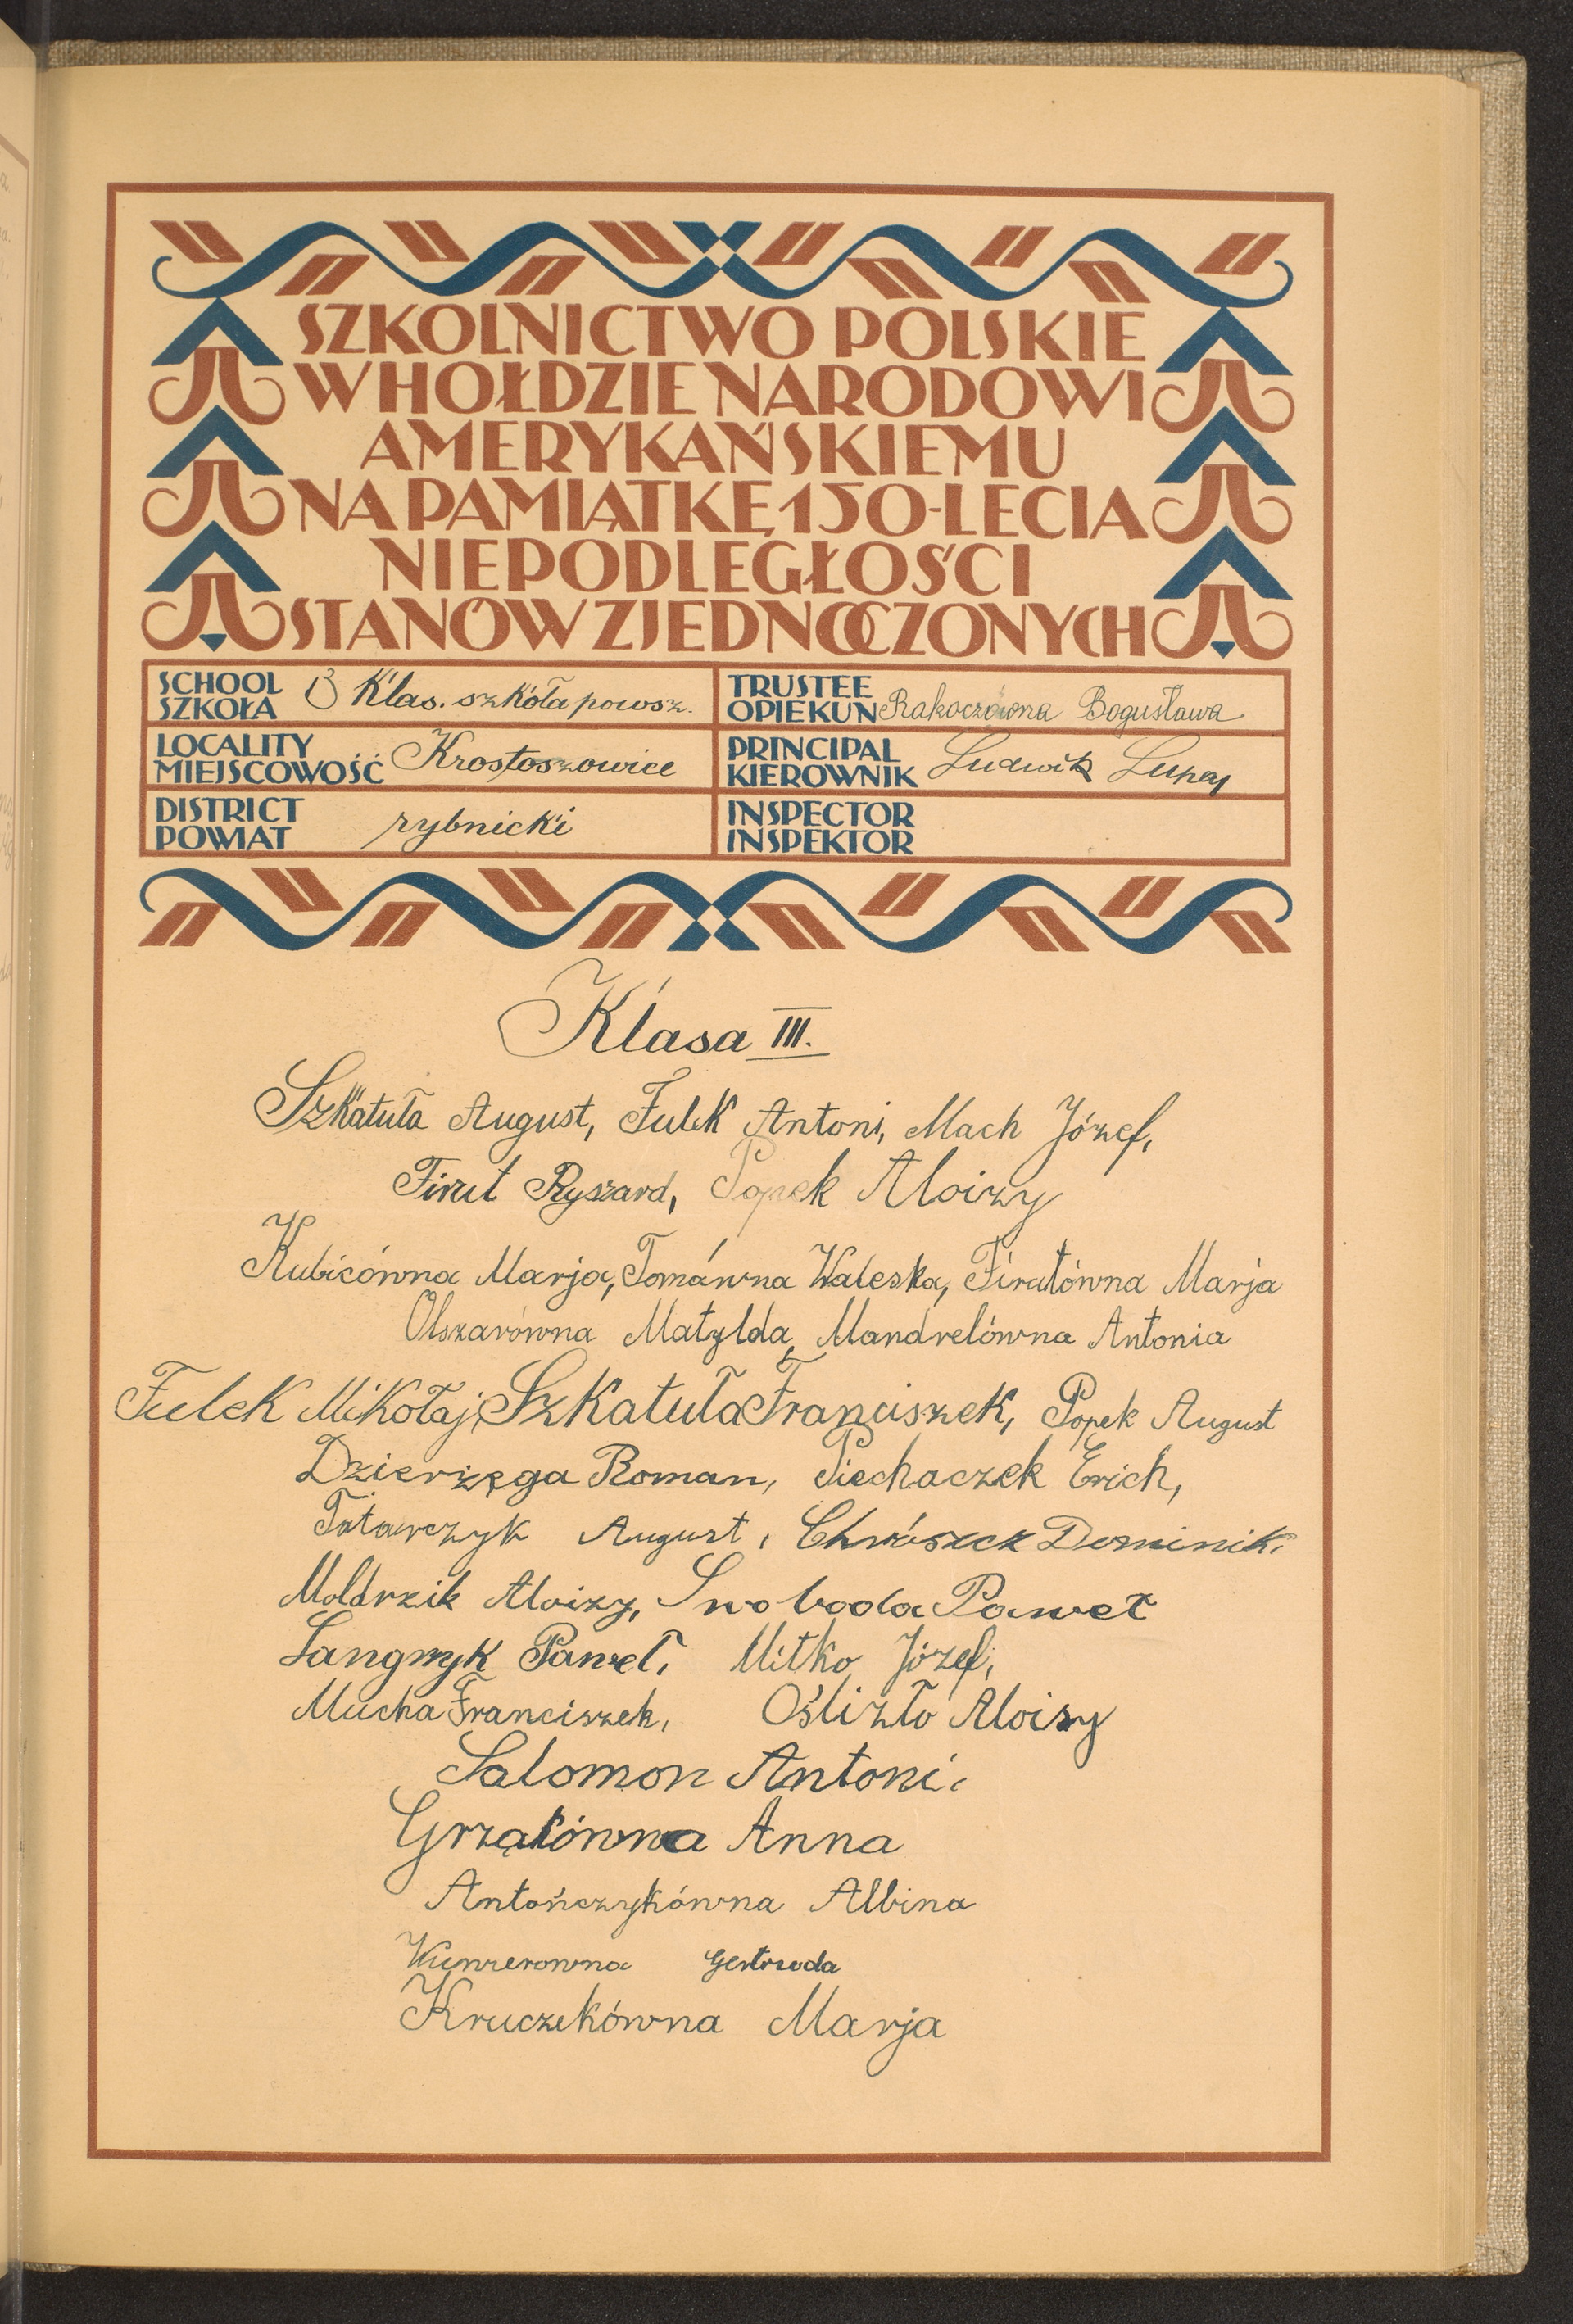 SZKOLNICTWO POLSKIE
W HOŁDZIE NARODOWI
AMERYKAŃSKIEMU
NA PAMIĄTKĘ 150-LECIA
NIEPODLEGŁOŚCI
STANÓW ZJEDNOCZONYCH
SCHOOL
SZKOŁA Klas. szkoła powsz.
TRUSTEE
OPIEKUN Rakoczówna Bogusława
LOCALITY
MIEJSCOWOŚĆ Krostoszowice
PRINCIPAL
KIEROWNIK Ludwik
DISTRICT
POWIAT rybnicki
INSPECTOR
INSPEKTOR
Klasa III.
Szkatuła August, Fulek Antoni, Mach Józef,
Firut Ryszard, Popek Aloizy
Kubicówna Marja, Tomáwna Waleska, Firutówna Marja
Olszarówna Matylda, Mandrelówna Antonia
Fulek Mikołaj, Szkatuła Franciszek, Popek August
Dzierżęga Roman, Piechaczek Erich,
Tatarczyk August, Chrószcz Dominik,
Moldrzik Aloizy, Swoboda Paweł
Paweł, Mitko Józef,
Mucha Franciszek, Oślizło Aloizy
Salomon Antoni,
Anna
Antończykówna Albina
Gertruda
Kruczekówna Marja